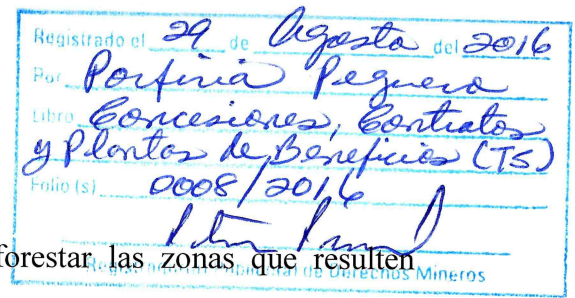 Registrado el 29 de Agosto del 2016
Por Porfiria Peguero
Libro Concesiones, Contratos
y Plantas de Beneficios (TS)
Folio (s) 0008/2016
forestar las zonas que resulten
de Derechos Mineros